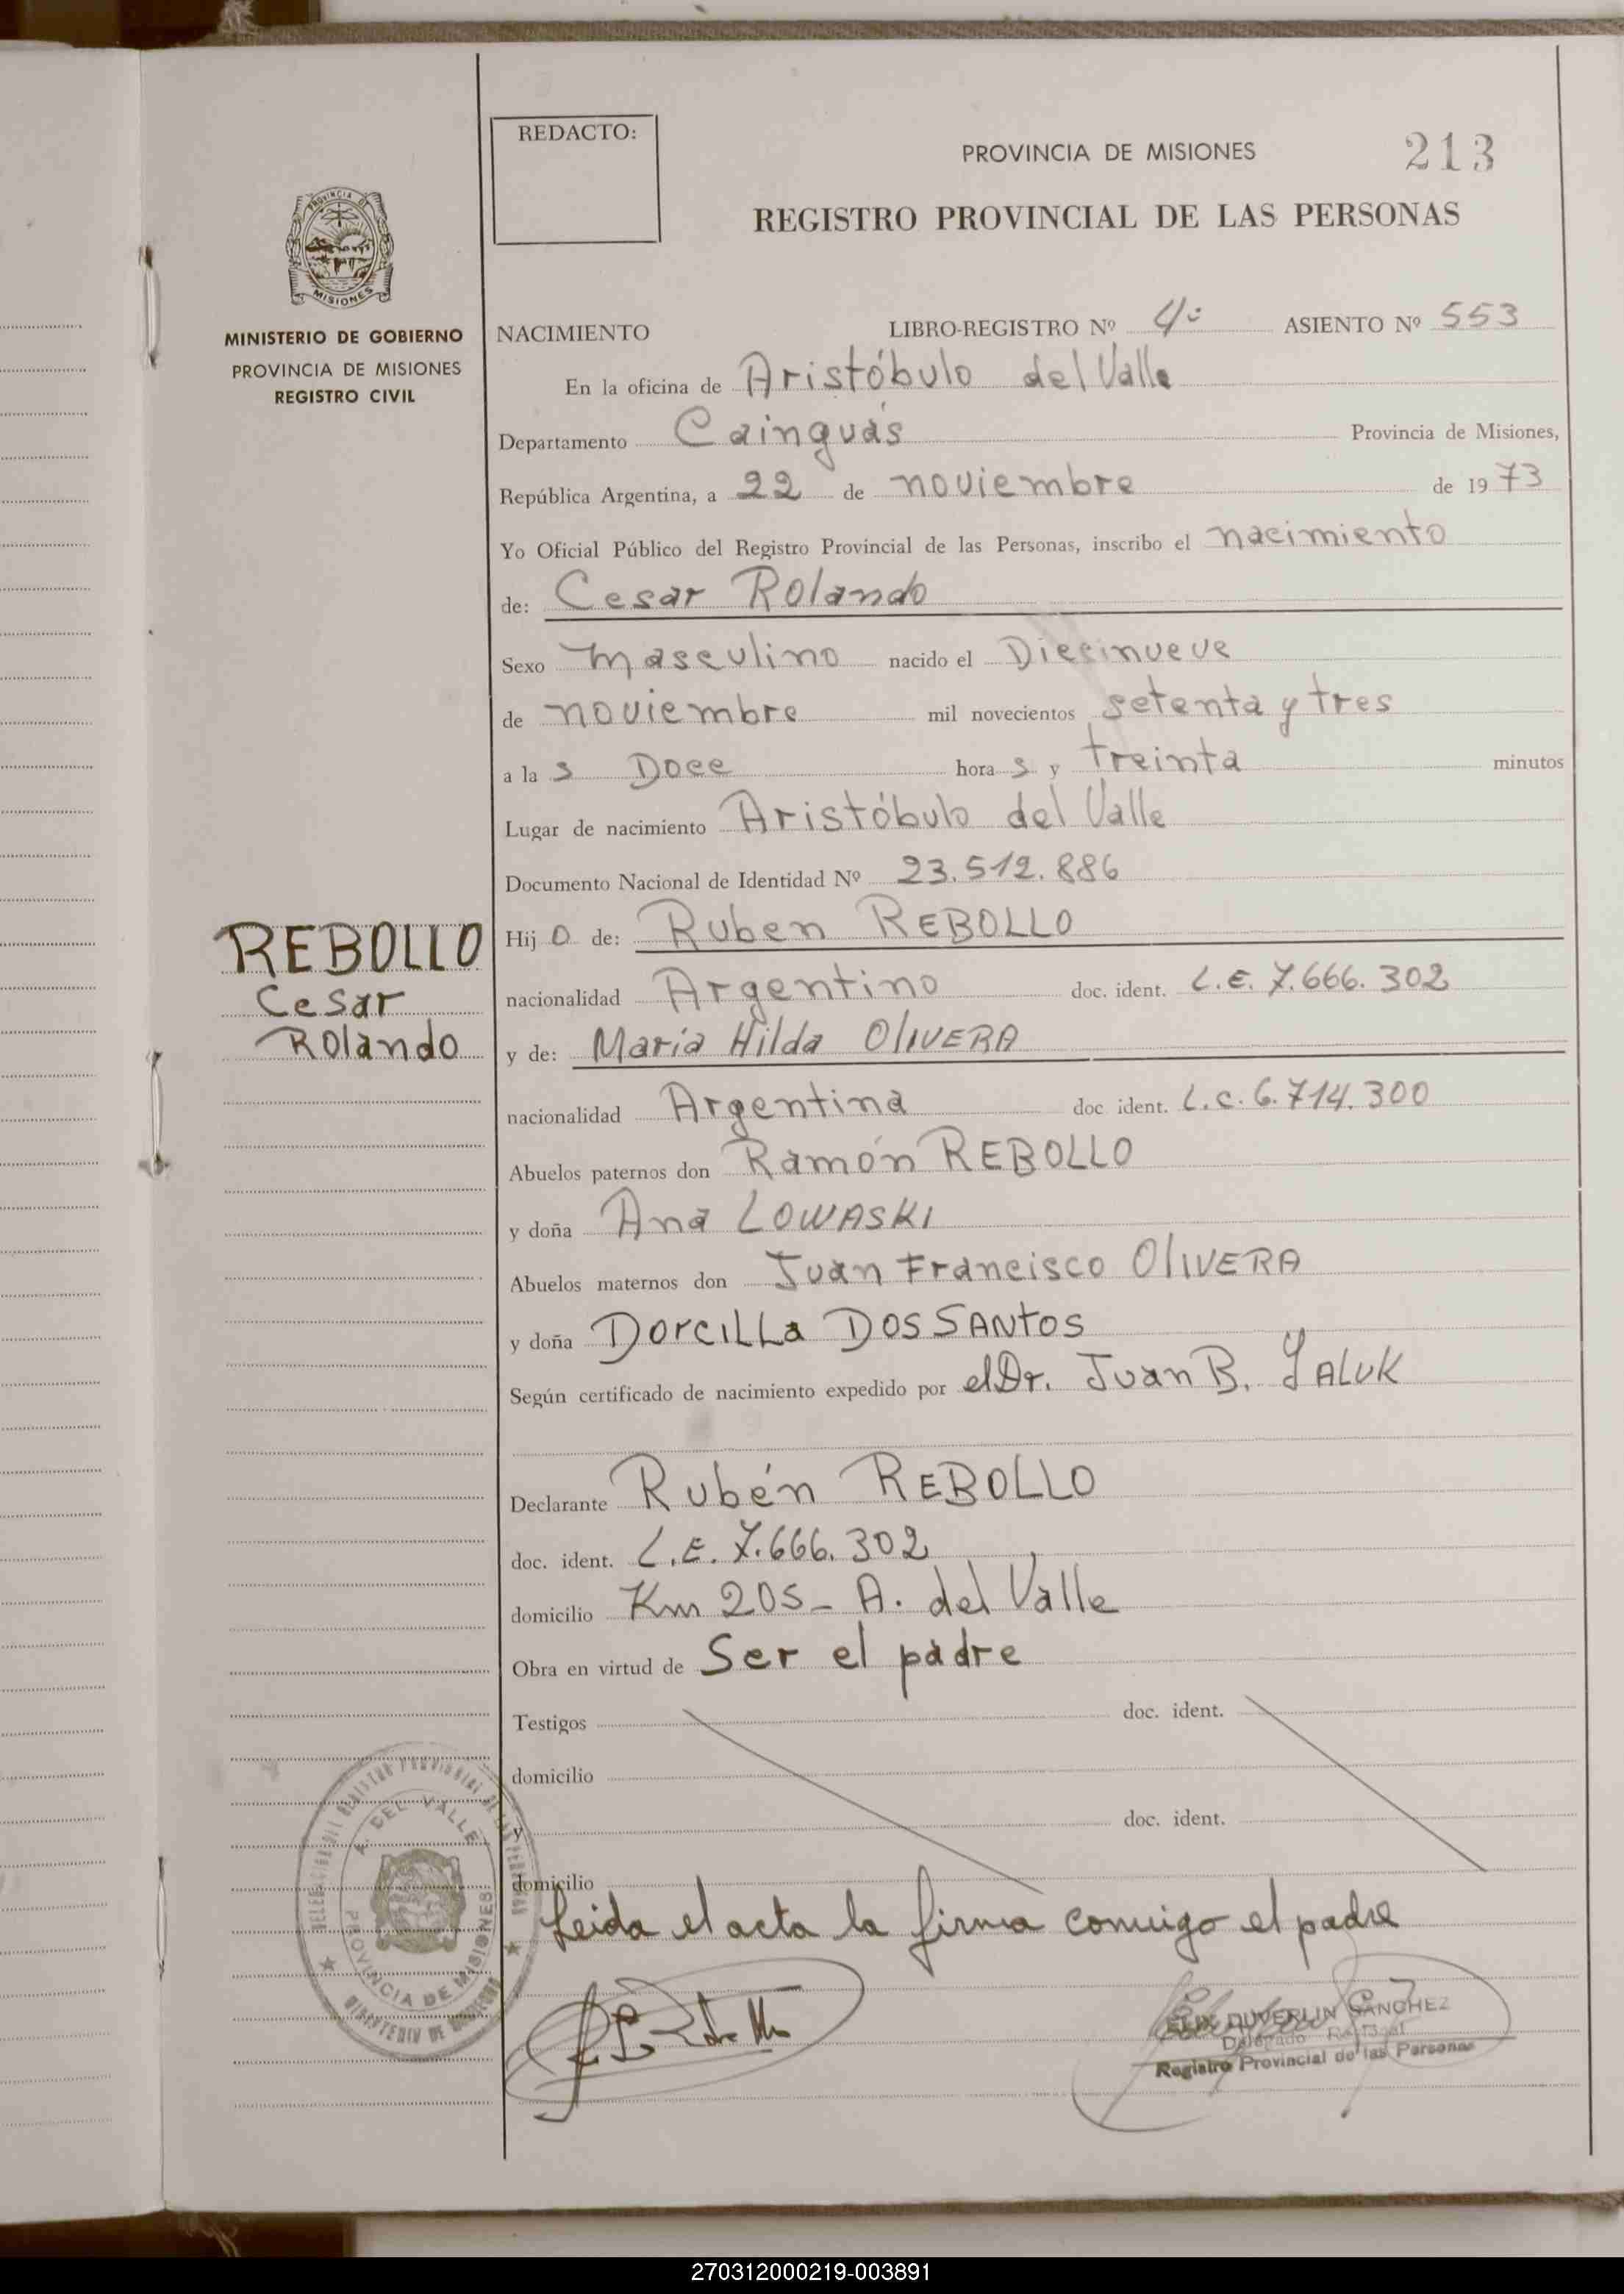 REDACTO:
PROVINCIA DE MISIONES
213
REGISTRO PROVINCIAL DE LAS PERSONAS
PROVINCIA DE
MISIONES
MINISTERIO DE GOBIERNO
PROVINCIA DE MISIONES
REGISTRO CIVIL
NACIMIENTO LIBRO-REGISTRO Nº 4º ASIENTO Nº 553
En la oficina de Aristóbulo del Valle
Departamento Cainguás Provincia de Misiones,
República Argentina, a 22 de noviembre de 1973
Yo Oficial Público del Registro Provincial de las Personas, inscribo el nacimiento
de: Cesar Rolando
Sexo masculino nacido el Diecinueve
de noviembre mil novecientos setenta y tres
a la s Doce hora s y treinta minutos
Lugar de nacimiento Aristóbulo del Valle
Documento Nacional de Identidad Nº 23.512.886
REBOLLO
Cesar
Rolando
Hij o de: Ruben REBOLLO
nacionalidad Argentino doc. ident. L.E. 7.666.302
y de: María Hilda OlIVERA
nacionalidad Argentina doc ident. L.C. 6.714.300
Abuelos paternos don Ramón REBOLLO
y doña Ana LOWASKI
Abuelos maternos don Juan Francisco OlIVERA
y doña DorciLLa DOS SANtOS
Según certificado de nacimiento expedido por el Dr. Juan B. YALUK
Declarante Rubén REBOLLO
doc. ident. L.E. 7.666.302
domicilio Km 205_ A. del Valle
Obra en virtud de Ser el padre
Testigos doc. ident.
domicilio
y doc. ident.
domicilio
Leida el acta la firma conmigo el padre
A. DEL VALLE
PROVINCIA DE MISIONES
FELIX DUVERLIN SANCHEZ
Delegado
Registro Provincial de las Personas
270312000219-003891